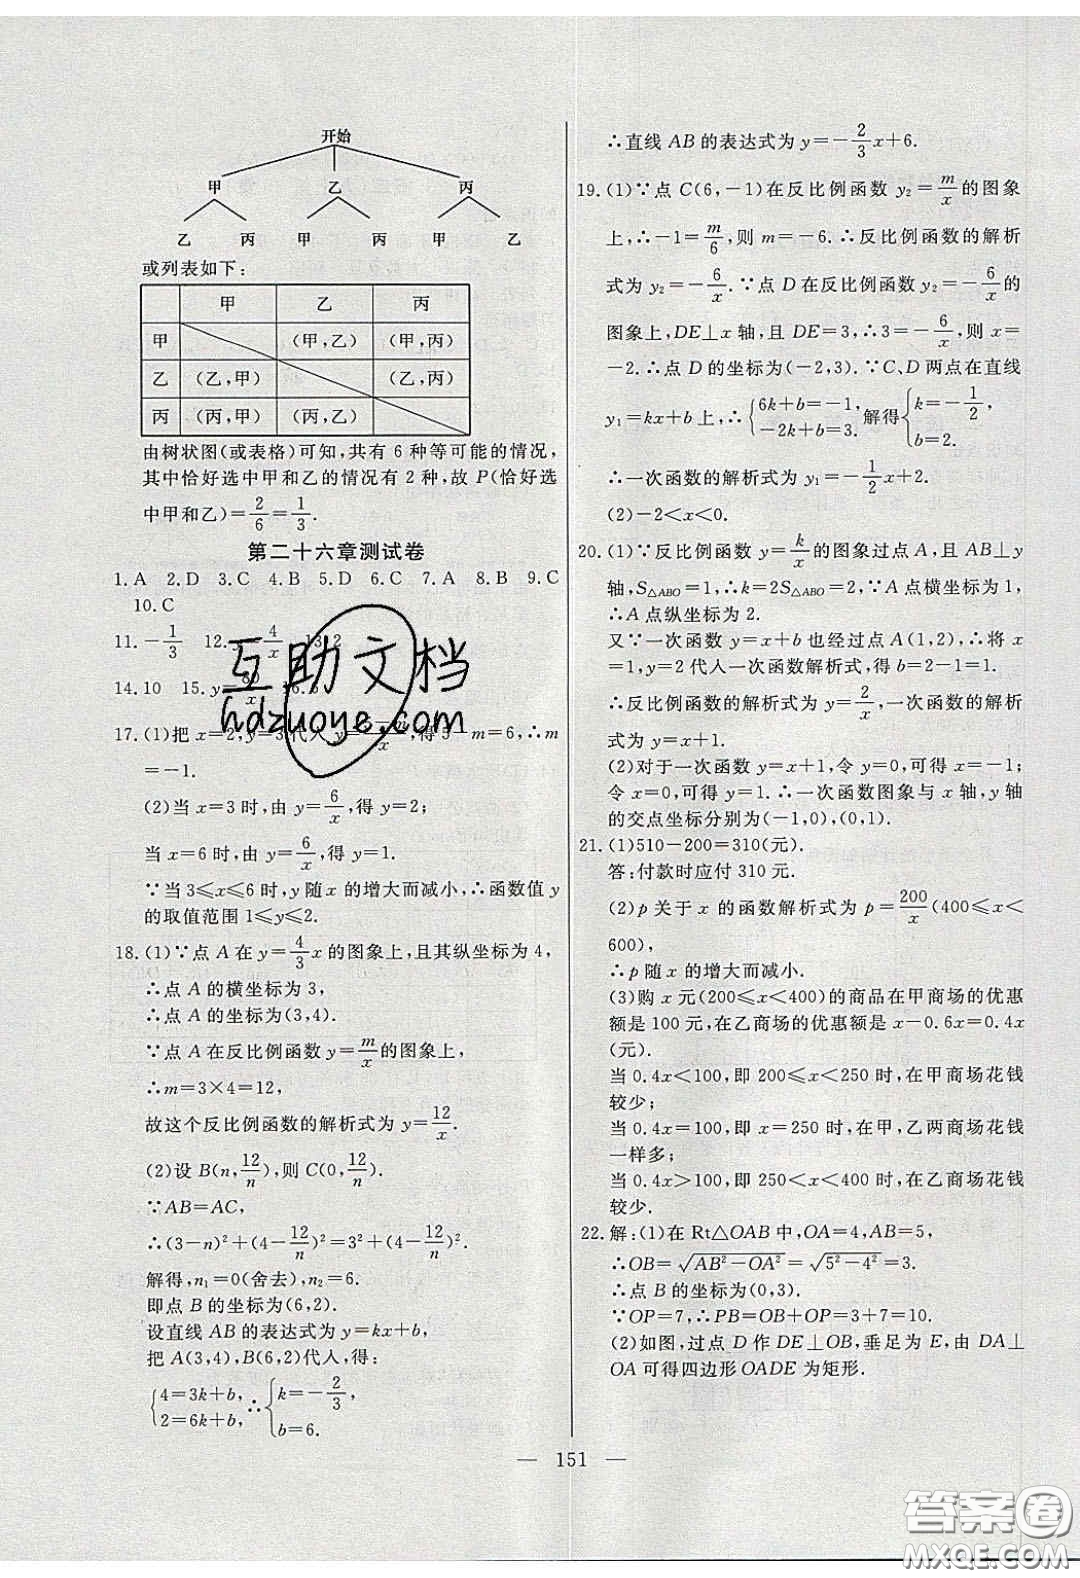 开始
甲 乙 丙
乙 丙 甲 丙 甲 乙
或列表如下:
甲 乙 丙
甲 (甲,乙) (甲,丙)
乙 (乙,甲) (乙,丙)
丙 (丙,甲) (丙,乙)
由树状图(或表格)可知,共有 6 种等可能的情况,
其中恰好选中甲和乙的情况有 2 种,故 P(恰好选
中甲和乙)=2/6=1/3.
第二十六章测试卷
1.A 2.D 3.C 4.B 5.D 6.C 7.A 8.B 9.C
10.C
11.-1/3 12. 4/x 13.2
14.10 15.y=
17.(1)把 x=2,y=3代入 y= ,得5-m=6,∴m
=-1.
(2)当 x=3 时,由 y=6/x,得 y=2;
当 x=6 时,由 y=6/x,得 y=1.
∵当 3≤x≤6 时,y 随 x 的增大而减小,∴函数值 y
的取值范围 1≤y≤2.
18.(1)∵点 A 在 y=4/3x 的图象上,且其纵坐标为 4,
∴点 A 的横坐标为 3,
∴点 A 的坐标为(3,4).
∵点 A 在反比例函数 y=m/x 的图象上,
∴m=3×4=12,
故这个反比例函数的解析式为 y=12/x.
(2)设 B(n,12/n),则 C(0,12/n).
∵AB=AC,
∴(3-n)²+(4-12/n)²=3²+(4-12/n)².
解得,n₁=0(舍去),n₂=6.
即点 B 的坐标为(6,2).
设直线 AB 的表达式为 y=kx+b,
把 A(3,4),B(6,2)代入,得:
{4=3k+b, 2=6k+b. ∴{k=-2/3, b=6.
∴直线 AB 的表达式为 y=-2/3x+6.
19.(1)∵点 C(6,-1)在反比例函数 y₂=m/x 的图象
上,∴-1=m/6,则 m=-6.∴反比例函数的解析
式为 y₂=-6/x.∵点 D 在反比例函数 y₂=-6/x 的
图象上,DE⊥x 轴,且 DE=3,∴3=-6/x,则 x=
-2.∴点 D 的坐标为(-2,3).∵C、D 两点在直线
y₁=kx+b 上,∴{6k+b=-1, -2k+b=3. 解得{k=-1/2, b=2.
∴一次函数的解析式为 y₁=-1/2x+2.
(2)-2<x<0.
20.(1)∵反比例函数 y=k/x 的图象过点 A,且 AB⊥y
轴,S△ABO=1,∴k=2S△ABO=2,∵A 点横坐标为 1,
∴A 点纵坐标为 2.
又∵一次函数 y=x+b 也经过点 A(1,2),∴将 x
=1,y=2 代入一次函数解析式,得 b=2-1=1.
∴反比例函数的解析式为 y=2/x,一次函数的解析
式为 y=x+1.
(2)对于一次函数 y=x+1,令 y=0,可得 x=-1;
令 x=0,可得 y=1.∴一次函数图象与 x 轴,y 轴
的交点坐标分别为(-1,0),(0,1).
21.(1)510-200=310(元).
答:付款时应付 310 元.
(2)p 关于 x 的函数解析式为 p=200/x(400≤x<
600),
∴p 随 x 的增大而减小.
(3)购 x 元(200≤x<400)的商品在甲商场的优惠
额是 100 元,在乙商场的优惠额是 x-0.6x=0.4x
(元).
当 0.4x<100,即 200≤x<250 时,在甲商场花钱
较少;
当 0.4x=100,即 x=250 时,在甲,乙两商场花钱
一样多;
当 0.4x>100,即 250<x<400 时,在乙商场花钱
较少.
22.解:(1)在 Rt△OAB 中,OA=4,AB=5,
∴OB=√(AB²-OA²)=√(5²-4²)=3.
∴点 B 的坐标为(0,3).
∵OP=7,∴PB=OB+OP=3+7=10.
(2)如图,过点 D 作 DE⊥OB,垂足为 E,由 DA⊥
OA 可得四边形 OADE 为矩形.
— 151 —
互助文档
hdzuoye.com
答案圈
MXQE.COM